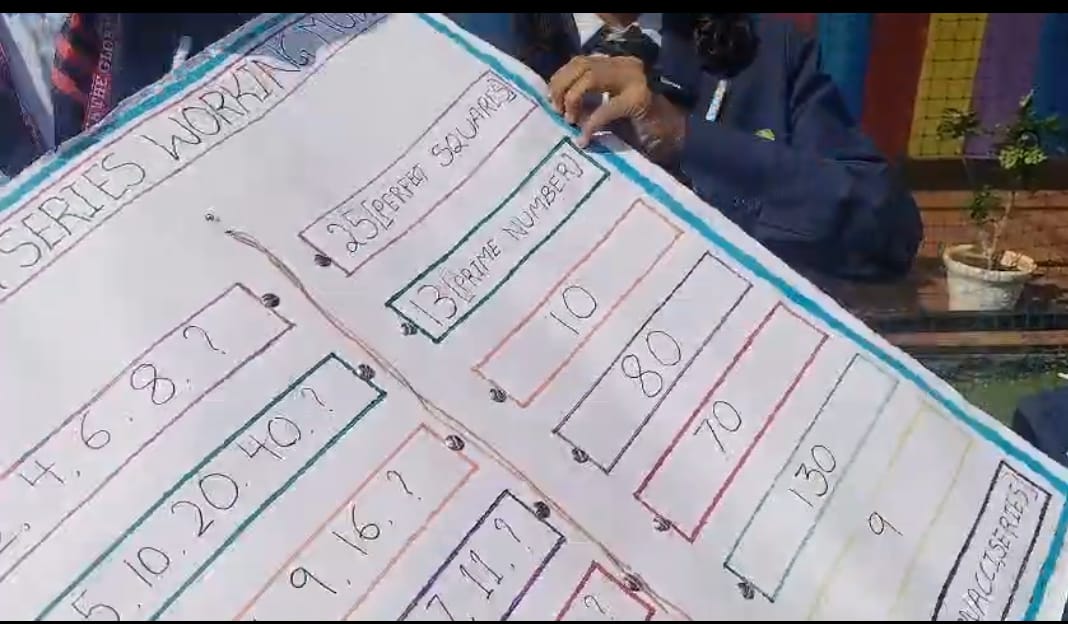 THE GLO
SERIES WORKING MO
25[PERFECT SQUARES]
13[PRIME NUMBER]
10
80
70
130
9
NACCISERIES]
4. 6. 8. ?
5. 10. 20. 40. ?
9. 16. ?
7. 11. ?
?